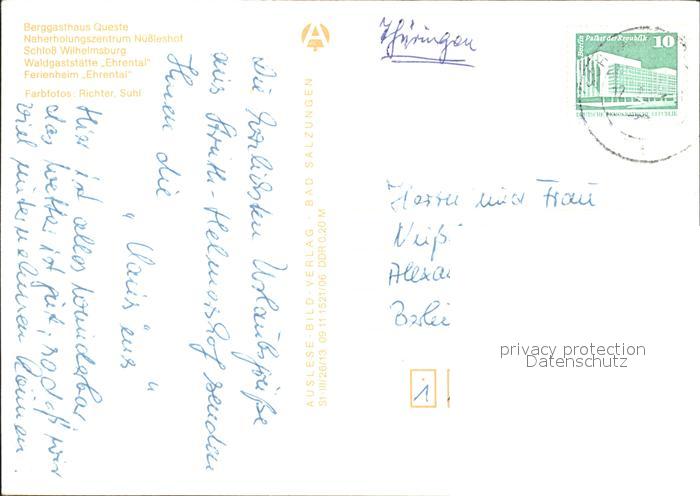 Berggasthaus Queste
Naherholungszentrum Nüßleshof
Schloß Wilhelmsburg
Waldgaststätte „Ehrental"
Ferienheim „Ehrental"
Farbfotos: Richter, Suhl
Die herzlichsten Urlaubsgrüße
aus Struth-Helmershof senden
Ihnen die
Hier ist alles wunderbar,
das Wetter ist gut, sodaß wir
viel unternehmen können.
AUSLESE-BILD-VERLAG - BAD SALZUNGEN
St-III/26/13 09 11 1521/06 DDR 0,20 M
Thüringen
Berlin, Palast der Republik
10
DEUTSCHE DEMOKRATISCHE REPUBLIK
Herrn und Frau
Neiß
Alexa
Berli
privacy protection
Datenschutz
1